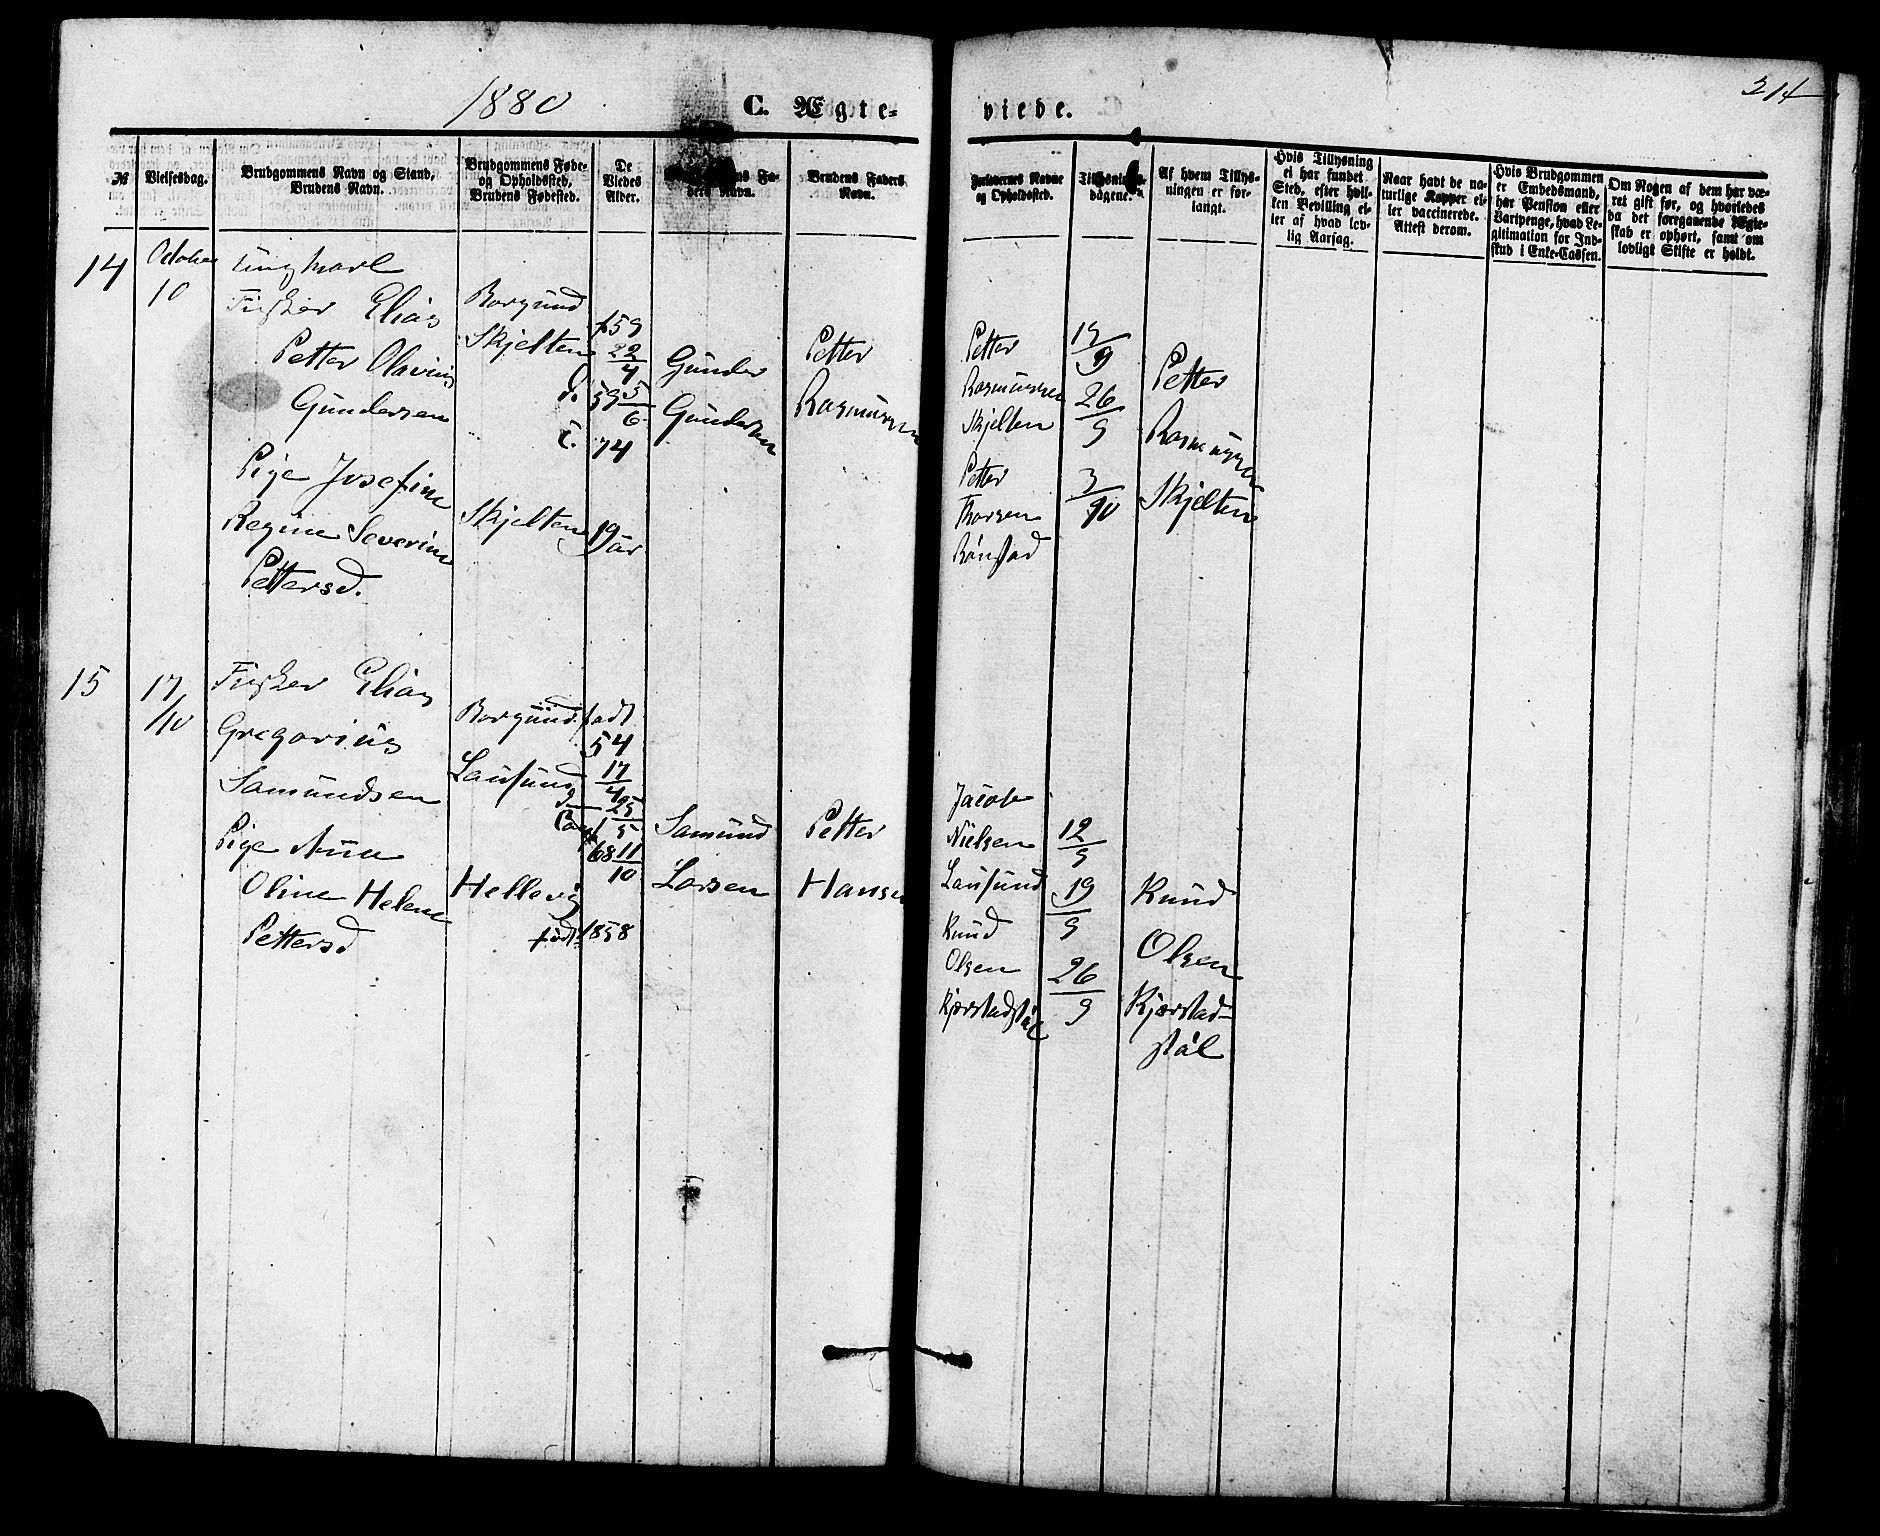 1880
C. Ægte-
viede.
214
№
Vielsesdag.
Brudgommens Navn og Stand,
Brudens Navn.
Brudgommens Føde-
og Opholdssted,
Brudens Fødested.
De
Viedes
Alder.
ns Fa-
ders Navn.
Brudens Faders
Navn.
Forlovernes Navne
og Opholdssted.
Tillysnings-
dagene.
Af hvem Tillys-
ningen er for-
langt.
Hvis Tillysning
ei har fundet
Sted, efter hvil-
ken Bevilling el-
ler af hvad lov-
lig Aarsag.
Naar havt de na-
turlige Kopper el-
ler vaccinerede.
Attest derom.
Hvis Brudgommen
er Embedsmand,
har Pension eller
Vartpenge, hvad Le-
gitimation for Ind-
skud i Enke-Cassen.
Om Nogen af dem har væ-
ret gift før, og hvorledes
da det foregaaende Ægte-
skab er ophørt, samt om
lovligt Skifte er holdt.
14
October
10
Ungkarl
Fisker Elias
Petter Olavius
Gundersen
Pige Josefine
Regine Severine
Pettersd.
Borgund
Skjelten
d.
c.
Skjelten
f 59
22/4
59 5/6
74
19
år
Gunder
Gundersen
Petter
Rasmussen
Petter
Rasmussen
Skjelten
Petter
Thorsen
Rönstad
19/9
26/9
3/10
Petter
Rasmussen
Skjelten
15
17/10
Fisker Elias
Gregorius
Samundsen
Pige Anne
Oline Helene
Pettersd
Borgund
Lausund
Hellevig
født
født
54
17/4
25/5
68 11/10
1858
Samund
Larsen
Petter
Hansen
Jacob
Nielsen
Lausund
Knud
Olsen
Kjærstadstöl
12/9
19/9
26/9
Knud
Olsen
Kjærstad-
støl